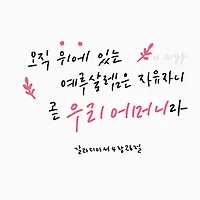 오직 위에 있는
예루살렘은 자유자니
곧 우리 어머니라
갈라디아서 4장 26절